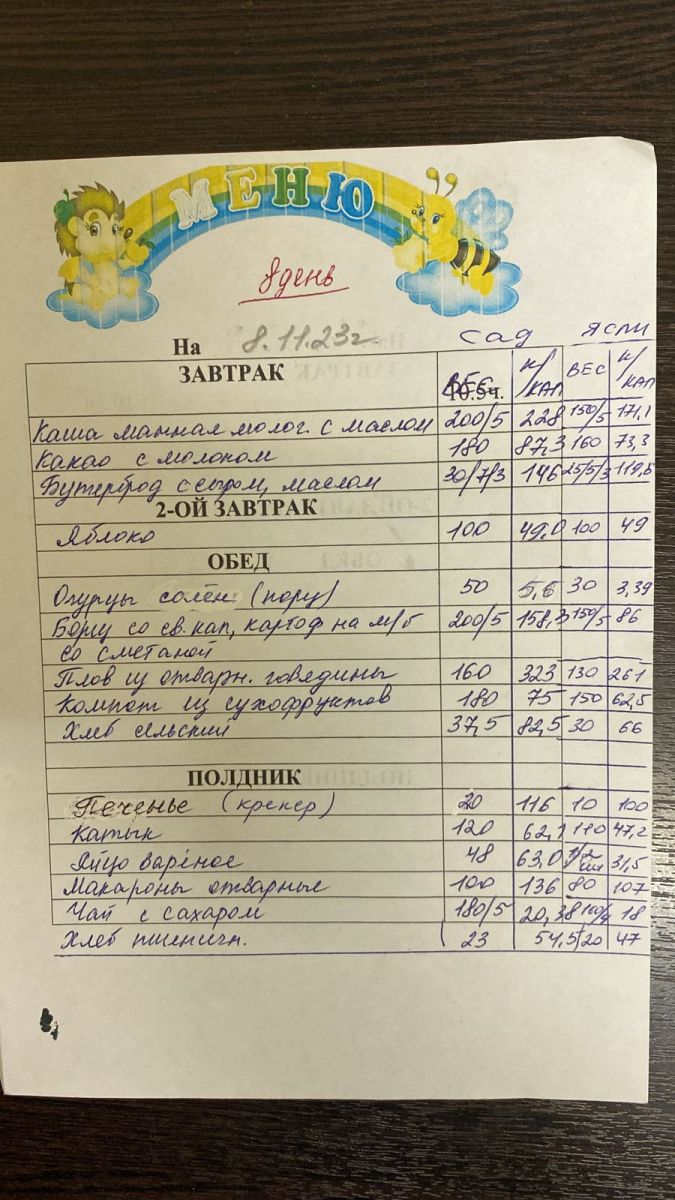 МЕНЮ
8 день
На 8.11.23г. сад ясли
ЗАВТРАК ВЕС 10.5ч. к/кал ВЕС к/кал
Каша манная молог. с маслом 200/5 228 150/5 171,1
Какао с молоком 180 87,3 160 73,3
Бутерброд с сыром, маслом 30/7/3 146 25/5/3 119,5
2-ОЙ ЗАВТРАК
Яблоко 100 49,0 100 49
ОБЕД
Огурцы солён (порц) 50 5,6 30 3,39
Борщ со св. кап, картоф на м/б 200/5 158,3 150/5 86
со сметаной
Плов из отварн. говядины 160 323 130 261
Компот из сухофруктов 180 75 150 62,5
Хлеб сельский 37,5 82,5 30 66
ПОЛДНИК
Печенье (крекер) 20 116 10 100
Катык 120 62,1 110 47,2
Яйцо варёное 48 63,0 1/2 шт 31,5
Макароны отварные 100 136 80 107
Чай с сахаром 180/5 20,38 160/4 18
Хлеб пшеничн. 23 54,5 20 47